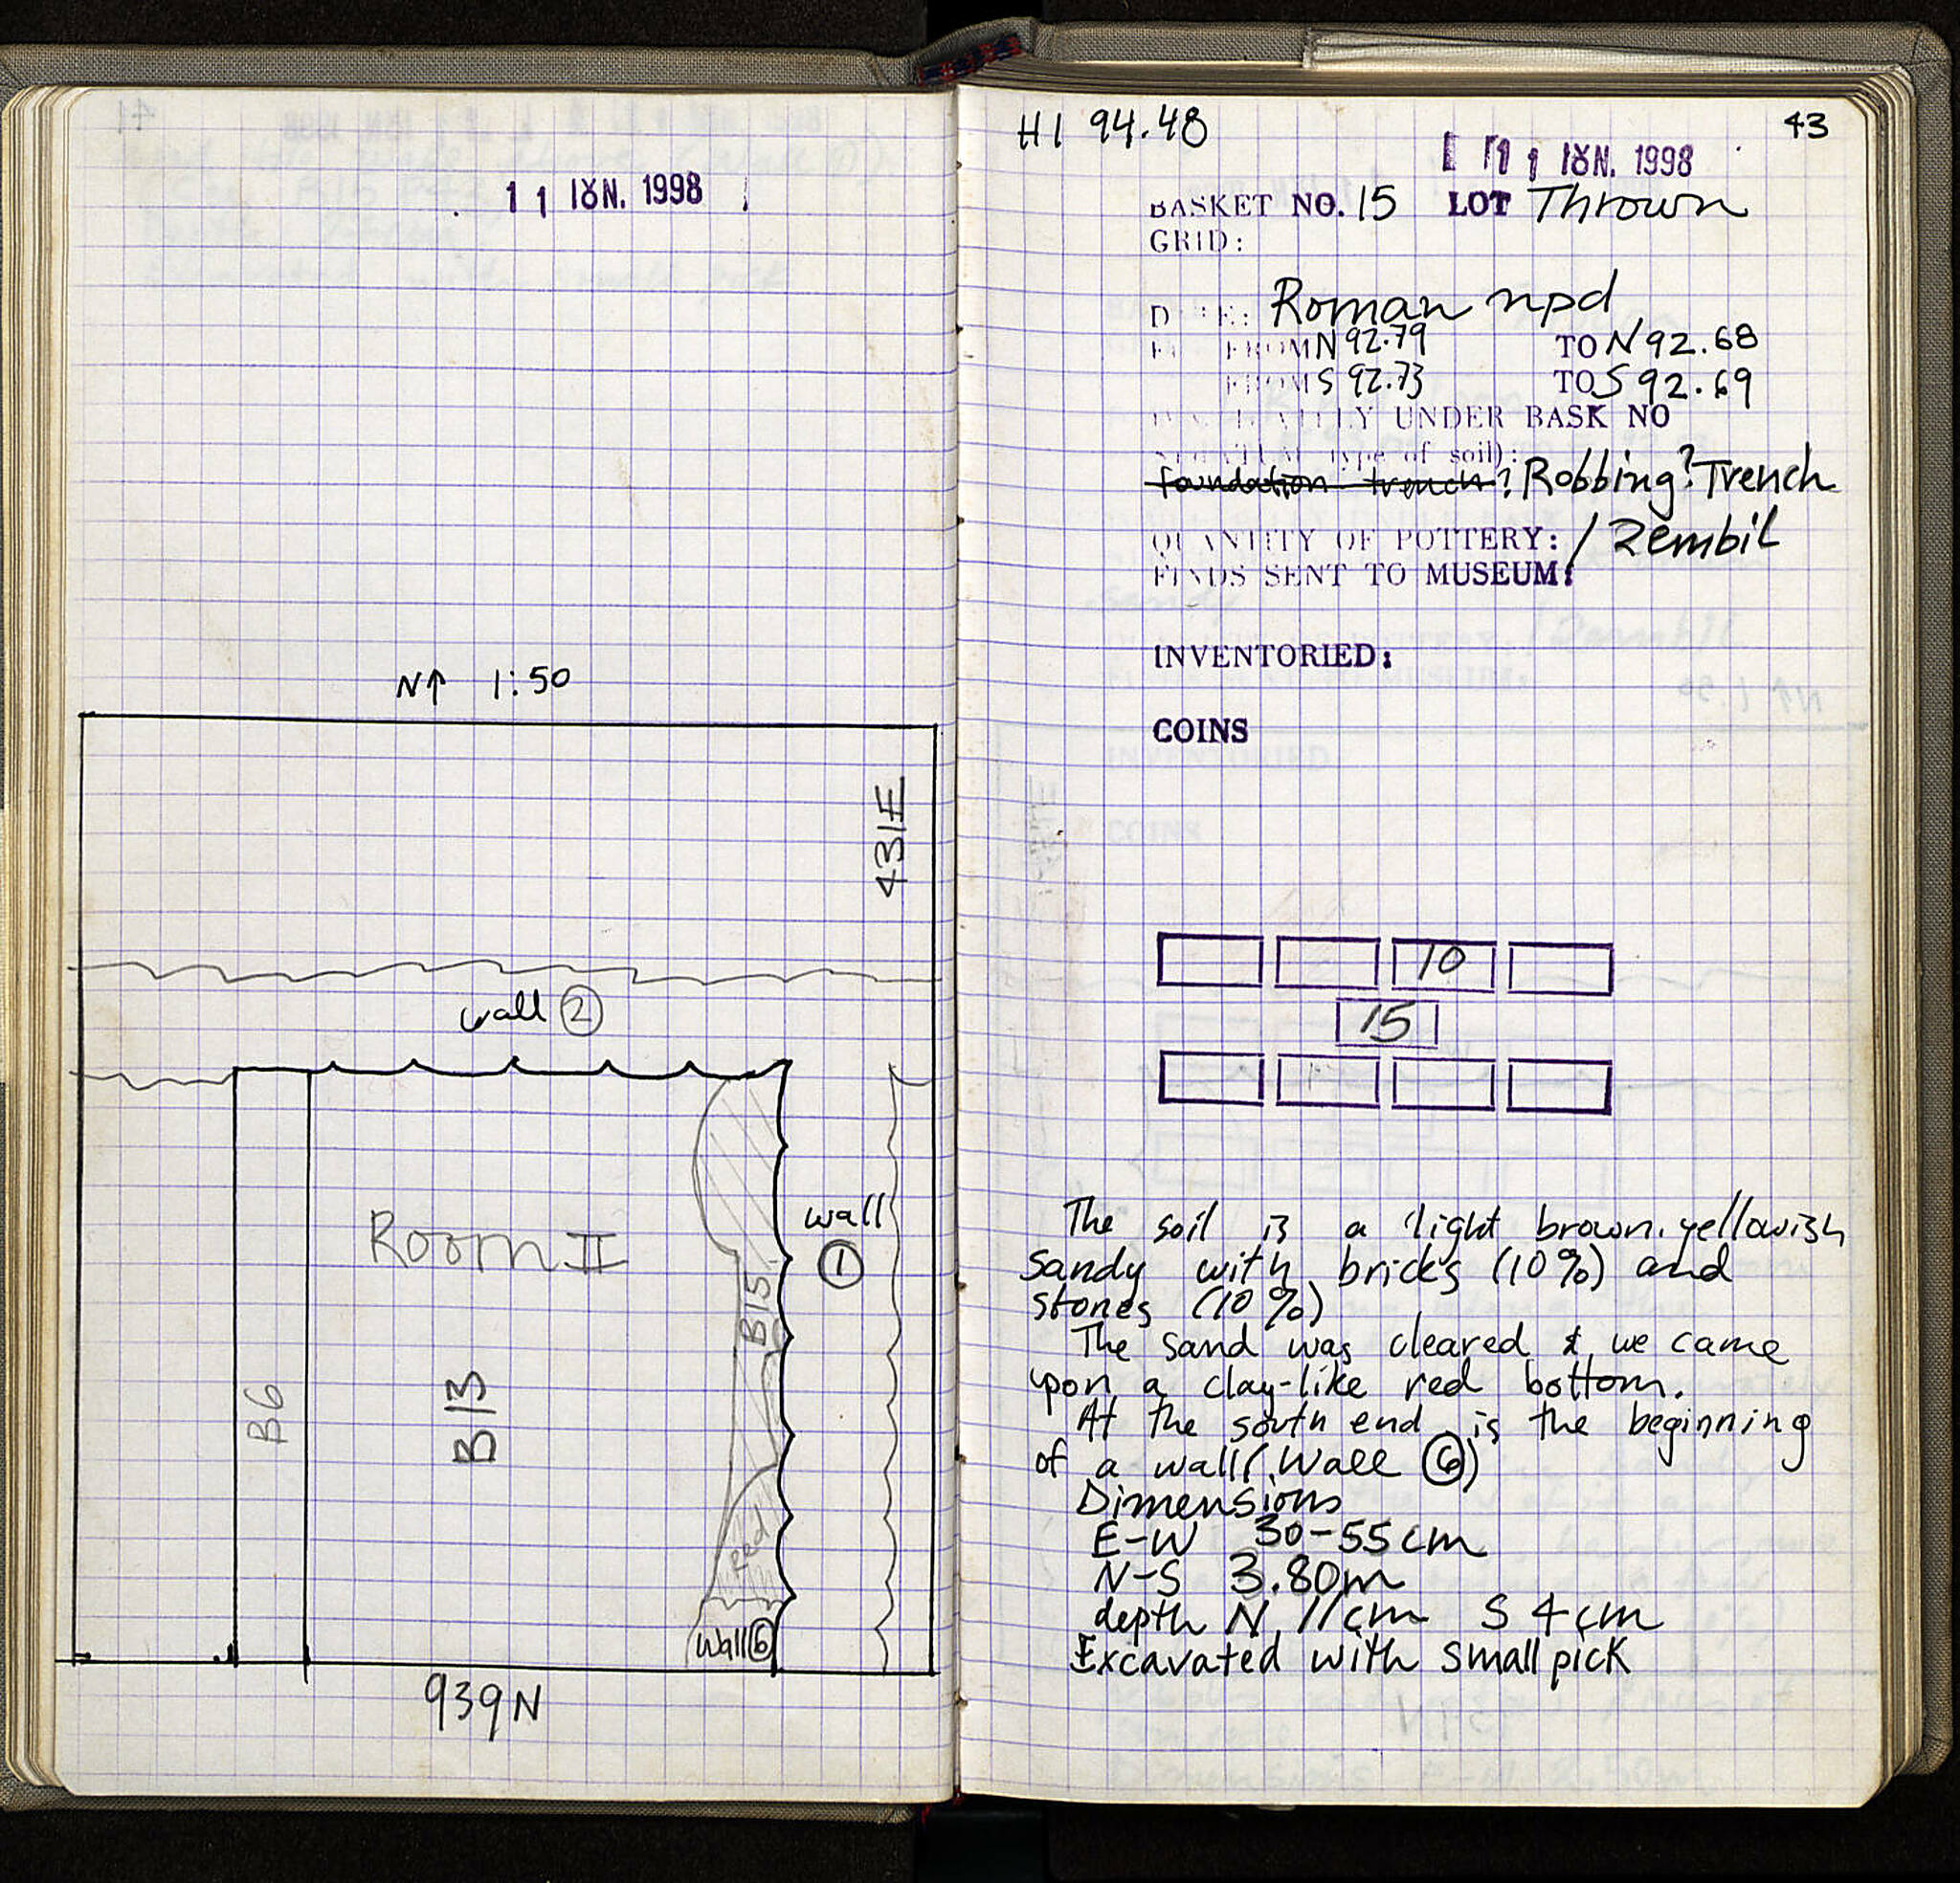 11 ΙΟΥΝ. 1998
N↑ 1:50
431E
wall ②
Room II
wall
①
B15
B6
B13
red
Wall ⑥
939N
HI 94.48
43
11 ΙΟΥΝ. 1998
BASKET NO. 15 LOT Thrown
GRID:
Roman npd
FROM N 92.79 TO N 92.68
FROM S 92.73 TO S 92.69
UNDER BASK NO
type of soil):
foundation trench? Robbing? Trench
QUANTITY OF POTTERY: 1 Zembil
FINDS SENT TO MUSEUM:
INVENTORIED:
COINS
10
15
The soil is a light brown. yellowish
sandy with bricks (10%) and
stones (10%)
The sand was cleared & we came
upon a clay-like red bottom.
At the south end is the beginning
of a wall (Wall ⑥)
Dimensions
E-W 30-55cm
N-S 3.80m
depth N 11cm S 4cm
Excavated with small pick